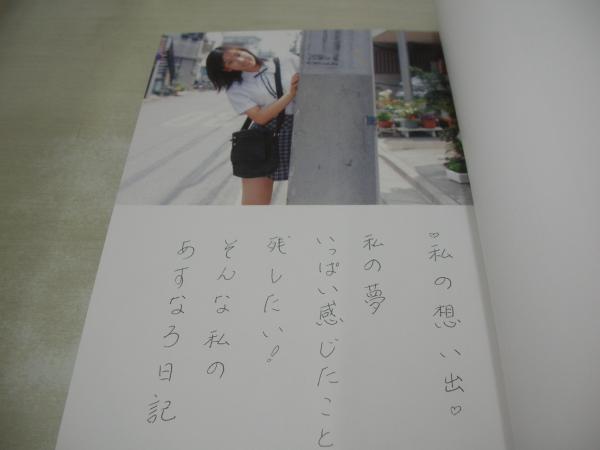 ♡私の想い出♡
私の夢
いっぱい感じたこと
残したい!
そんな私の
あすなろ日記